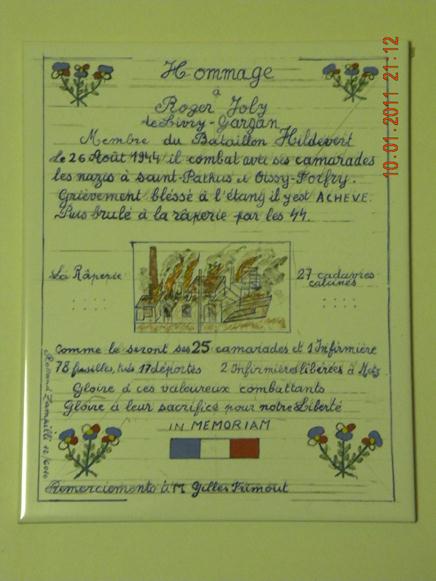 Hommage
à
Roger Joly
de Livry-Gargan
Membre du Bataillon Hildevert
Le 26 Août 1944 il combat avec ses camarades
les nazis à Saint-Pathus et Oissy-Forfry.
Grièvement bléssé à l'étang il y est ACHEVE.
Puis brulé à la râperie par les 44.
La Râperie
27 cadavres
calcinés
Comme le seront ses 25 camarades et 1 Infirmière
78 fusillés, tués 17 déportés 2 Infirmières libérées à Metz
Gloire à ces valeureux combattants
Gloire à leur sacrifice pour notre Liberté
IN MEMORIAM
Remerciements à M Gilles Primout
10.01.2011 21:12